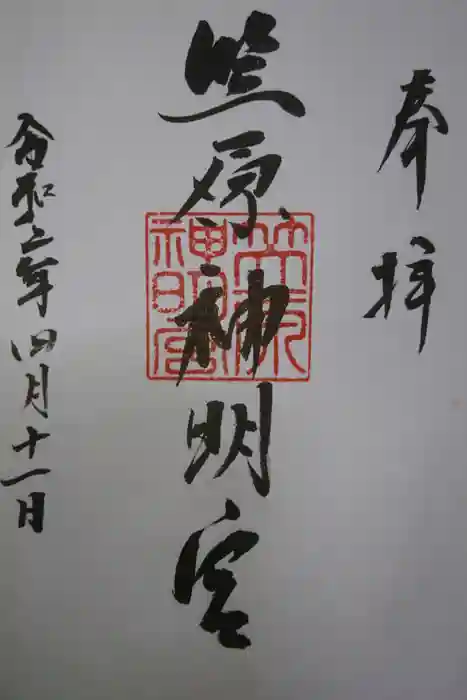 奉拝
笠原神明宮
笠原
神明宮
令和二年四月十一日